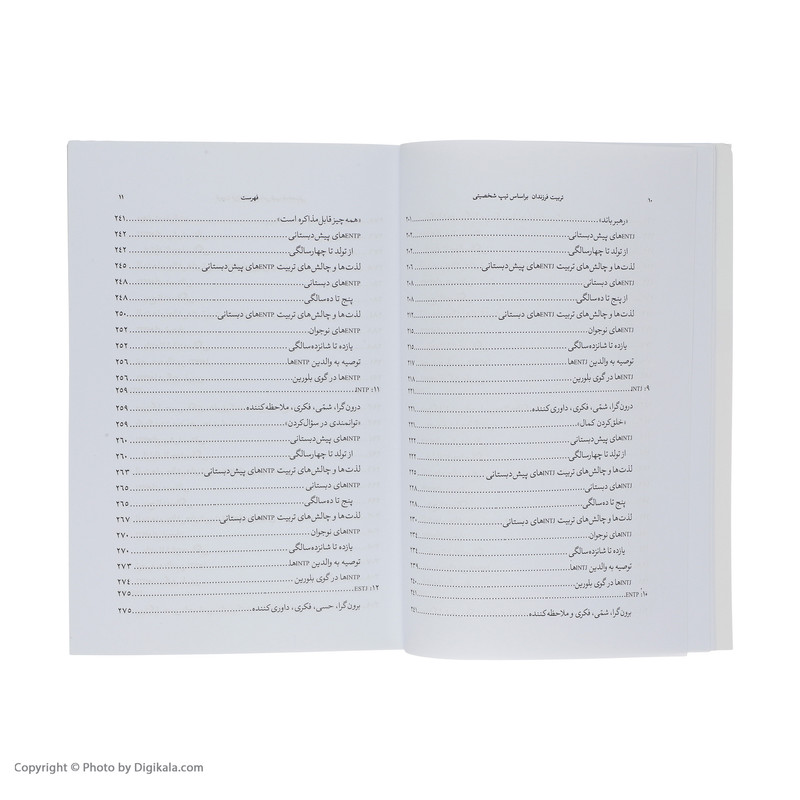 ۱۰ تربیت فرزندان براساس تیپ شخصیتی
«رهبر باند» ۲۰۱
ENTJهای پیش‌دبستانی ۲۰۲
از تولد تا چهارسالگی ۲۰۲
لذت‌ها و چالش‌های تربیت ENTJهای پیش‌دبستانی ۲۰۶
ENTJهای دبستانی ۲۰۸
از پنج تا ده‌سالگی ۲۰۸
لذت‌ها و چالش‌های تربیت ENTJهای دبستانی ۲۱۲
ENTJهای نوجوان ۲۱۵
یازده تا شانزده‌سالگی ۲۱۵
توصیه به والدین ENTJها ۲۱۷
ENTJها در گوی بلورین ۲۱۸
۹: INTJ ۲۲۱
درون‌گرا، شمّی، فکری، داوری‌کننده ۲۲۱
«خلق‌کردن کمال» ۲۲۱
INTJهای پیش‌دبستانی ۲۲۲
از تولد تا چهارسالگی ۲۲۲
لذت‌ها و چالش‌های تربیت INTJهای پیش‌دبستانی ۲۲۵
INTJهای دبستانی ۲۲۸
پنج تا ده‌سالگی ۲۲۸
لذت‌ها و چالش‌های تربیت INTJهای دبستانی ۲۳۰
INTJهای نوجوان ۲۳۴
یازده تا شانزده‌سالگی ۲۳۴
توصیه به والدین INTJها ۲۳۹
INTJها در گوی بلورین ۲۴۰
۱۰: ENTP ۲۴۱
برون‌گرا، شمّی، فکری و ملاحظه‌کننده ۲۴۱
فهرست ۱۱
«همه چیز قابل مذاکره است» ۲۴۱
ENTPهای پیش‌دبستانی ۲۴۲
از تولد تا چهارسالگی ۲۴۲
لذت‌ها و چالش‌های تربیت ENTPهای پیش‌دبستانی ۲۴۵
ENTPهای دبستانی ۲۴۸
پنج تا ده‌سالگی ۲۴۸
لذت‌ها و چالش‌های تربیت ENTPهای دبستانی ۲۵۰
ENTPهای نوجوان ۲۵۲
یازده تا شانزده‌سالگی ۲۵۲
توصیه به والدین ENTPها ۲۵۶
ENTPها در گوی بلورین ۲۵۶
۱۱: INTP ۲۵۹
درون‌گرا، شمّی، فکری، ملاحظه‌کننده ۲۵۹
«توانمندی در سؤال‌کردن» ۲۵۹
INTPهای پیش‌دبستانی ۲۶۰
از تولد تا چهارسالگی ۲۶۰
لذت‌ها و چالش‌های تربیت INTPهای پیش‌دبستانی ۲۶۳
INTPهای دبستانی ۲۶۵
پنج تا ده‌سالگی ۲۶۵
لذت‌ها و چالش‌های تربیت INTPهای دبستانی ۲۶۷
INTPهای نوجوان ۲۷۰
یازده تا شانزده‌سالگی ۲۷۰
توصیه به والدین INTPها ۲۷۳
INTPها در گوی بلورین ۲۷۴
۱۲: ESTJ ۲۷۵
برون‌گرا، حسی، فکری، داوری‌کننده ۲۷۵
Copyright © Photo by Digikala.com